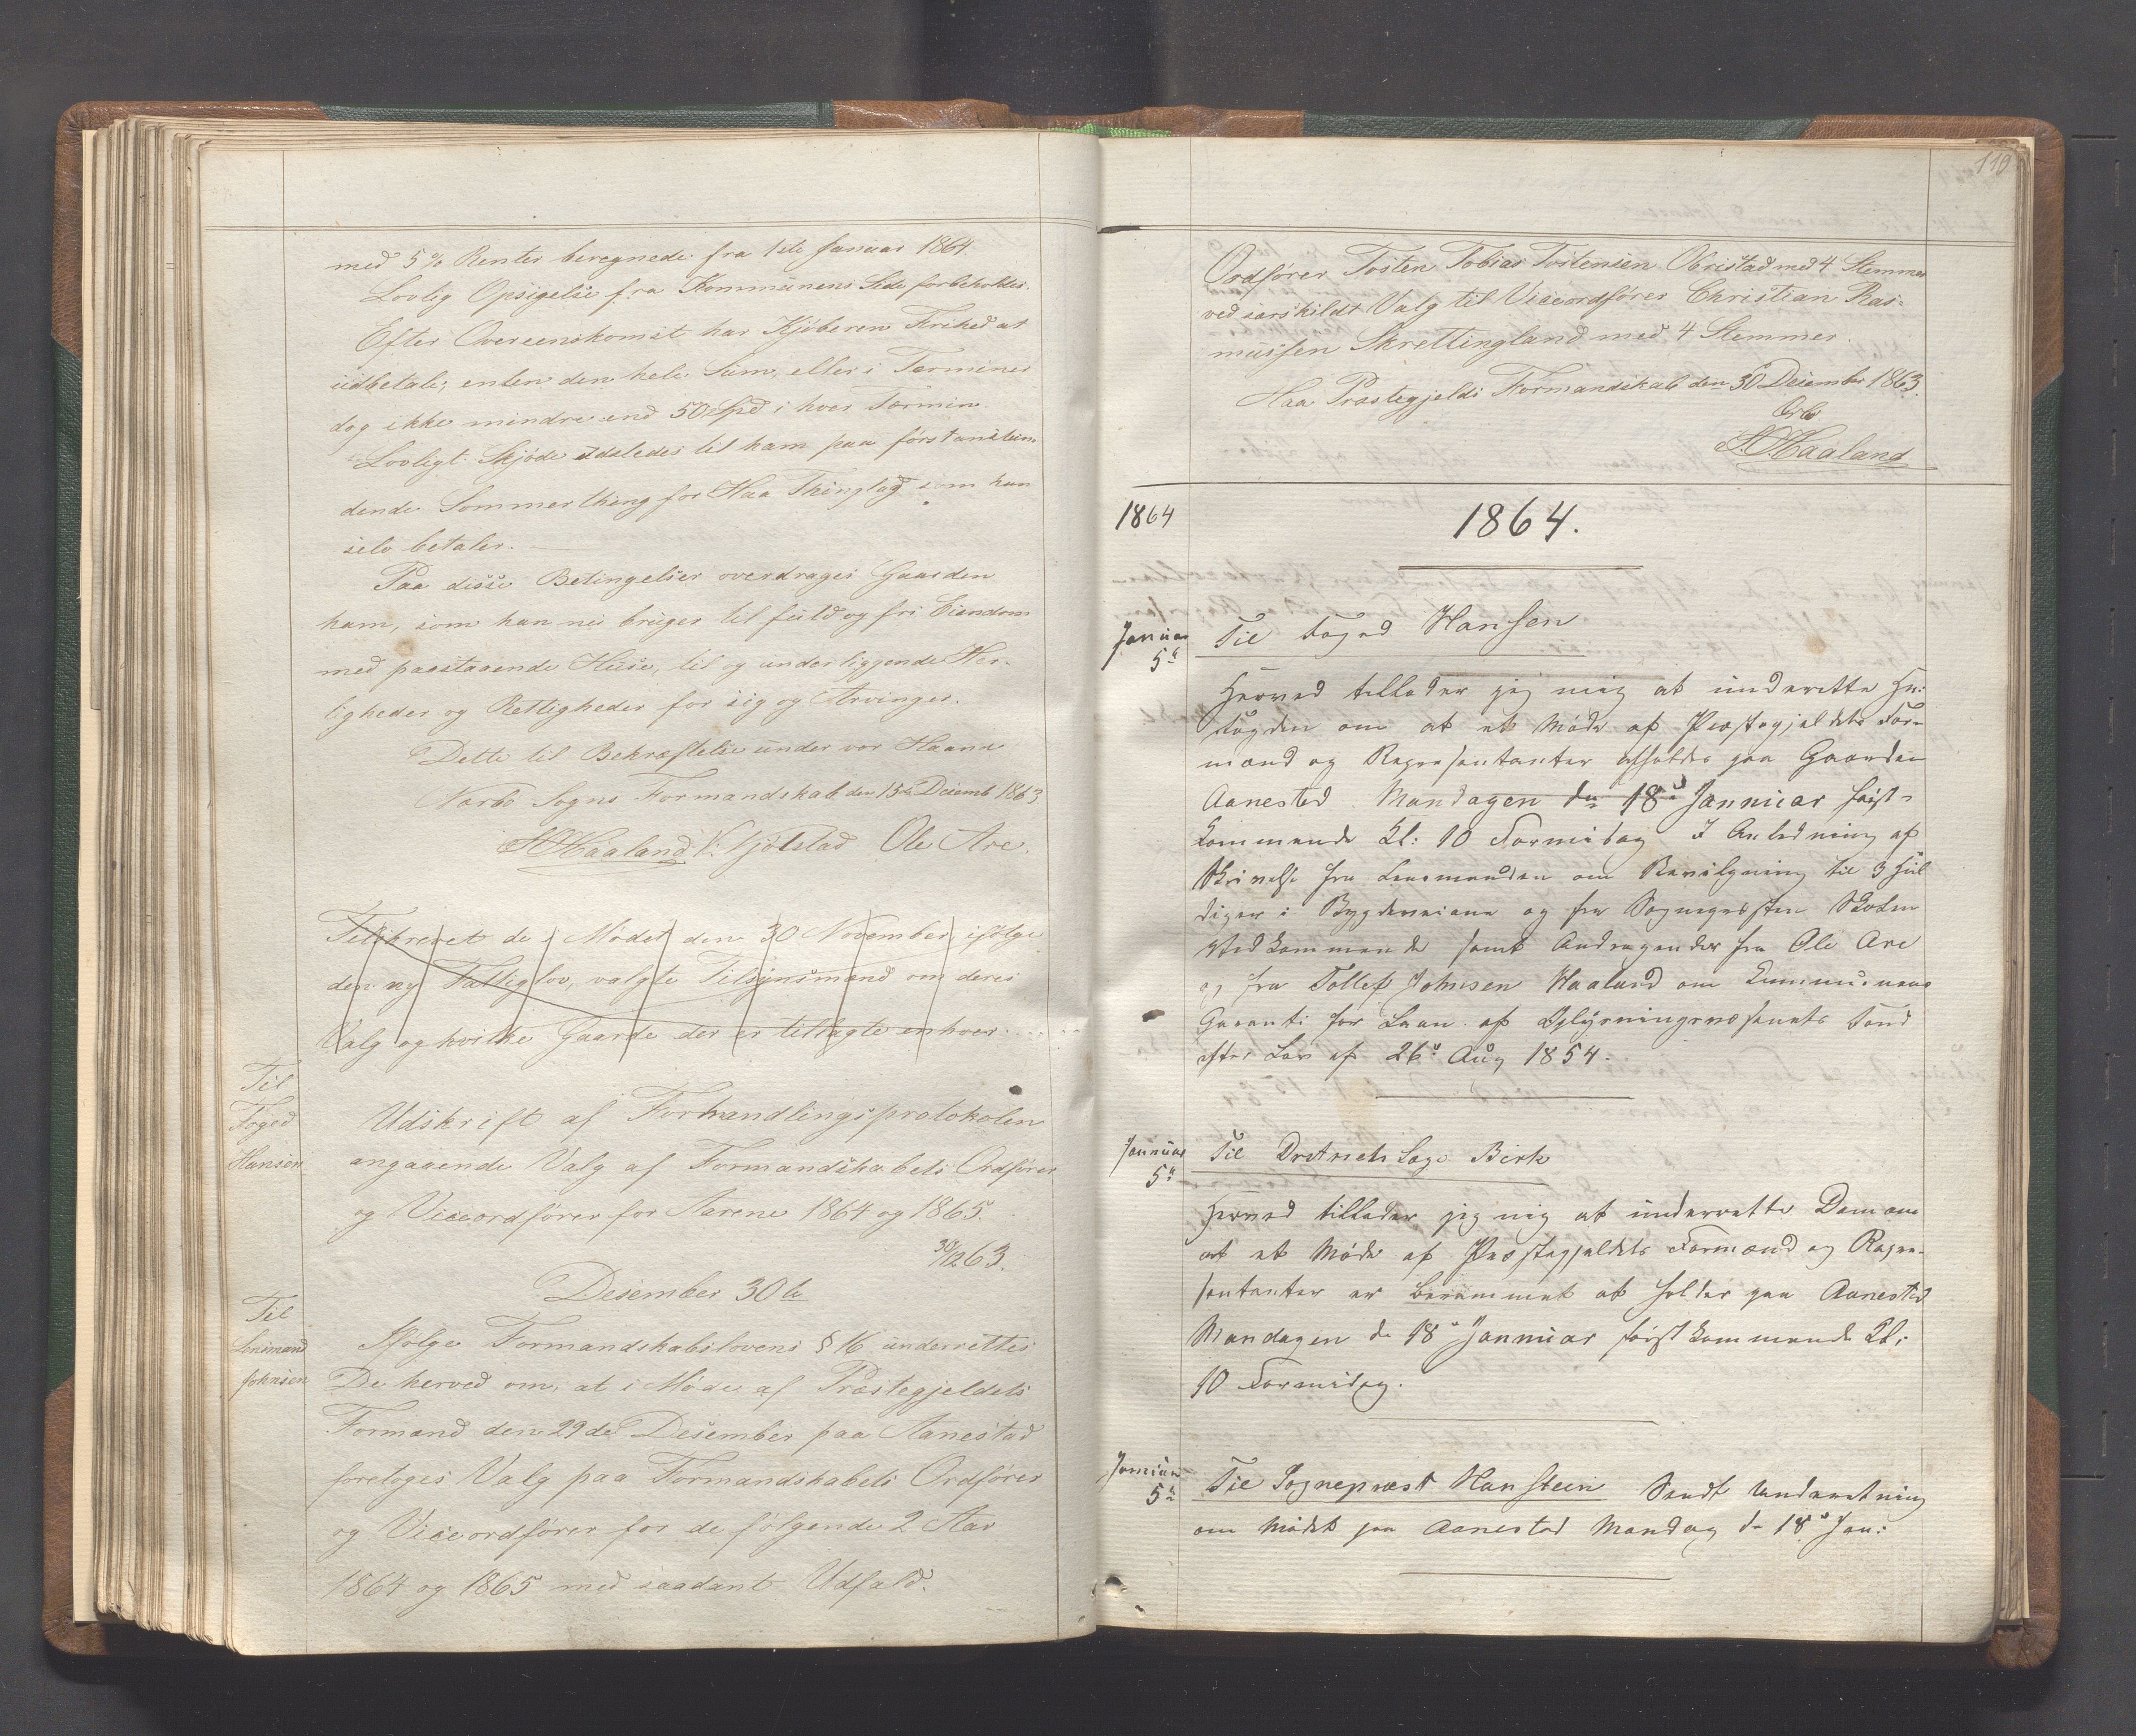 med 5% Renter beregnede fra 1ste Januar 1864.
Lovlig Opsigelse fra Kommunens Side forbeholdes.
Efter Overeenskomst har Kjöberen Frihed at
udbetale; enten den hele Sum, eller i Terminer
dog ikke mindre end 50 Spd i hver Termin.
Lovligt Skjöde udstedes til ham paa förstanstun
dende Sommerthing for Haa Thinglag som han
selv betaler.
Paa disse Betingelser overdrages Gaarden
ham, som han nu bruges til fuld og fri Eiendom
med paastaaende Huse, til og underliggende Her-
ligheder og Rettigheder for sig og Arvinger.
Dette til Bekræftelse under vor Haand
Nærbö Sogns Formandskab den 13de Decemb 1863
Haaland Njölstad Ole Are.
Tilskrevet de i Mödet den 30 November ifölge
den ny Fattiglov, valgte Tilsynsmænd om deres
Valg og hvilke Gaarde der er tillagte enhver
Til
Foged
Hansen
Udskrift af Forhandlingsprotokolen
angaaende Valg af Formandskabets Ordförer
og Viceordförer for Aarene 1864 og 1865.
30/12 63.
Desember 30te
Til
Lensmand
Johnsen
Ifölge Formandskabslovens § 16 underrettes
De herved om, at i Möde af Præstegjeldets
Formænd den 29de Desember paa Aanestad
foretoges Valg paa Formandskabets Ordförer
og Viceordförer for de fölgende 2 Aar
1864 og 1865 med saadant Udfald.
110
Ordförer Tosten Tobias Tostensen Obristad med 4 Stemmer
ved särskildt Valg til Viceordförer Christian Ras-
mussen Skrettingland med 4 Stemmer.
Haa Præstegjelds Formandskab den 30 Desember 1863.
Haaland
1864
1864.
Januar
5te
Til Foged Hansen
Herved tillader jeg mig at underrette Hr:
Fogden om at et Möde af Præstegjeldets For-
mænd og Repræsentanter afholdes paa Gaarden
Aanestad Mandagen dn 18de Januar først-
kommende Kl: 10 Formidag I Anledning af
Skrivelse fra Lensmanden om Bevilgning til 3
i Bygdeveiene og fra Sognepræsten Skolen
Vedkommende samt Andragender fra Ole Are
og fra Tollef Johnsen Haaland om Kommunens
Garanti for Laan af Oplysningsvæsenets Fond
efter Lov af 26de Aug 1854.
Januar
5te
Til Læge Birk
Herved tillader jeg mig at underrette Dem om
at et Möde af Præstegjeldets Formænd og Repræ-
sentanter er berammet at holdes paa Aanestad
Mandagen d 18de Januar førstkommende Kl:
10 Formidag.
Januar
5te
Til Sognepræst Hanstein Sendt Underretning
om Mödet paa Aanestad Mandag d 18de Jan: